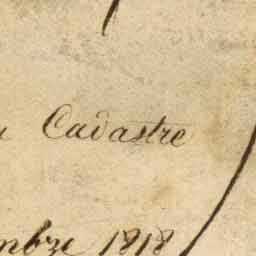 Cadastre
mbre 1818